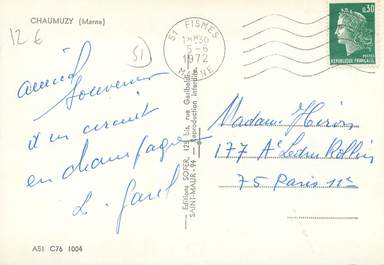 CHAUMUZY (Marne)
12 €
51
51 FISMES
14H30
5-6
1972
MARNE
0,30
POSTES
REPUBLIQUE FRANÇAISE
amical
souvenir
en circuit
en champagne
L.
Madame
177 Ae Ledru Rollin
75 Paris 11e
Editions SOFER, 128 bis, rue Garibaldi
SAINT-MAUR-94 - Reproduction interdite.
A51 C76 1004